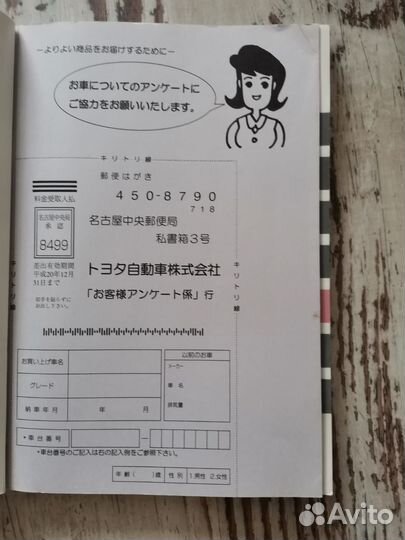 −よりよい商品をお届けするために−
お車についてのアンケートに
ご協力をお願いいたします。
キリトリ線
郵便はがき
料金受取人払
450-8790
718
名古屋中央局
承認
8499
名古屋中央郵便局
私書箱3号
差出有効期間
平成20年12月
31日まで
切手を貼らずに
お出し下さい。
トヨタ自動車株式会社
「お客様アンケート係」行
キリトリ線
キリトリ線
お買い上げ車名
グレード
納車年月 年 月
以前のお車
メーカー
車名
排気量
*車台番号
*車台番号のご記入は右の記入例をご参照下さい。
年齢( )歳 性別 1.男性 2.女性
Avito